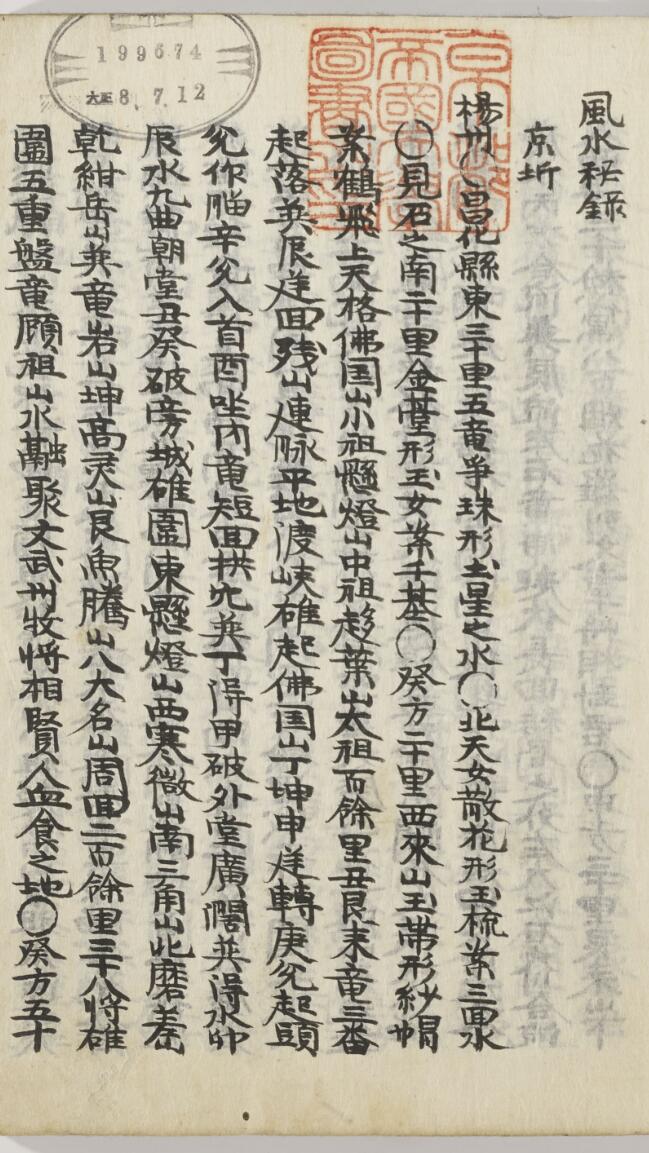 風水秘錄
京圻
楊州 昌化縣東三十里五竜爭珠形土星之水〇北天女散花形玉梳案三回水
〇見石之南二十里金䓫形玉女案千基〇癸方二十里西來山玉帶形紗帽
案鶴飛上天格佛国山小祖懸燈山中祖趍葉山太祖百餘里丑艮末竜三番
起落巽辰逆回残山連脉平地渡峡碓起佛国山丁坤申逆轉庚兌起頭
兌作腦辛兌入首酉坐內竜短回拱穴巽丁得甲破外堂廣濶巽得水卯
辰水九曲朝堂丑癸破旁城碓圍東懸燈山西寒微山南三角山北磨差山
乾紺岳山巽竜岩山坤高灵山艮魚騰山八大名山周回二百餘里三十八將碓
圍五重盤竜顧祖山水融聚文武州牧將相賢人血食之地〇癸方五十
199674
大正8.7.12